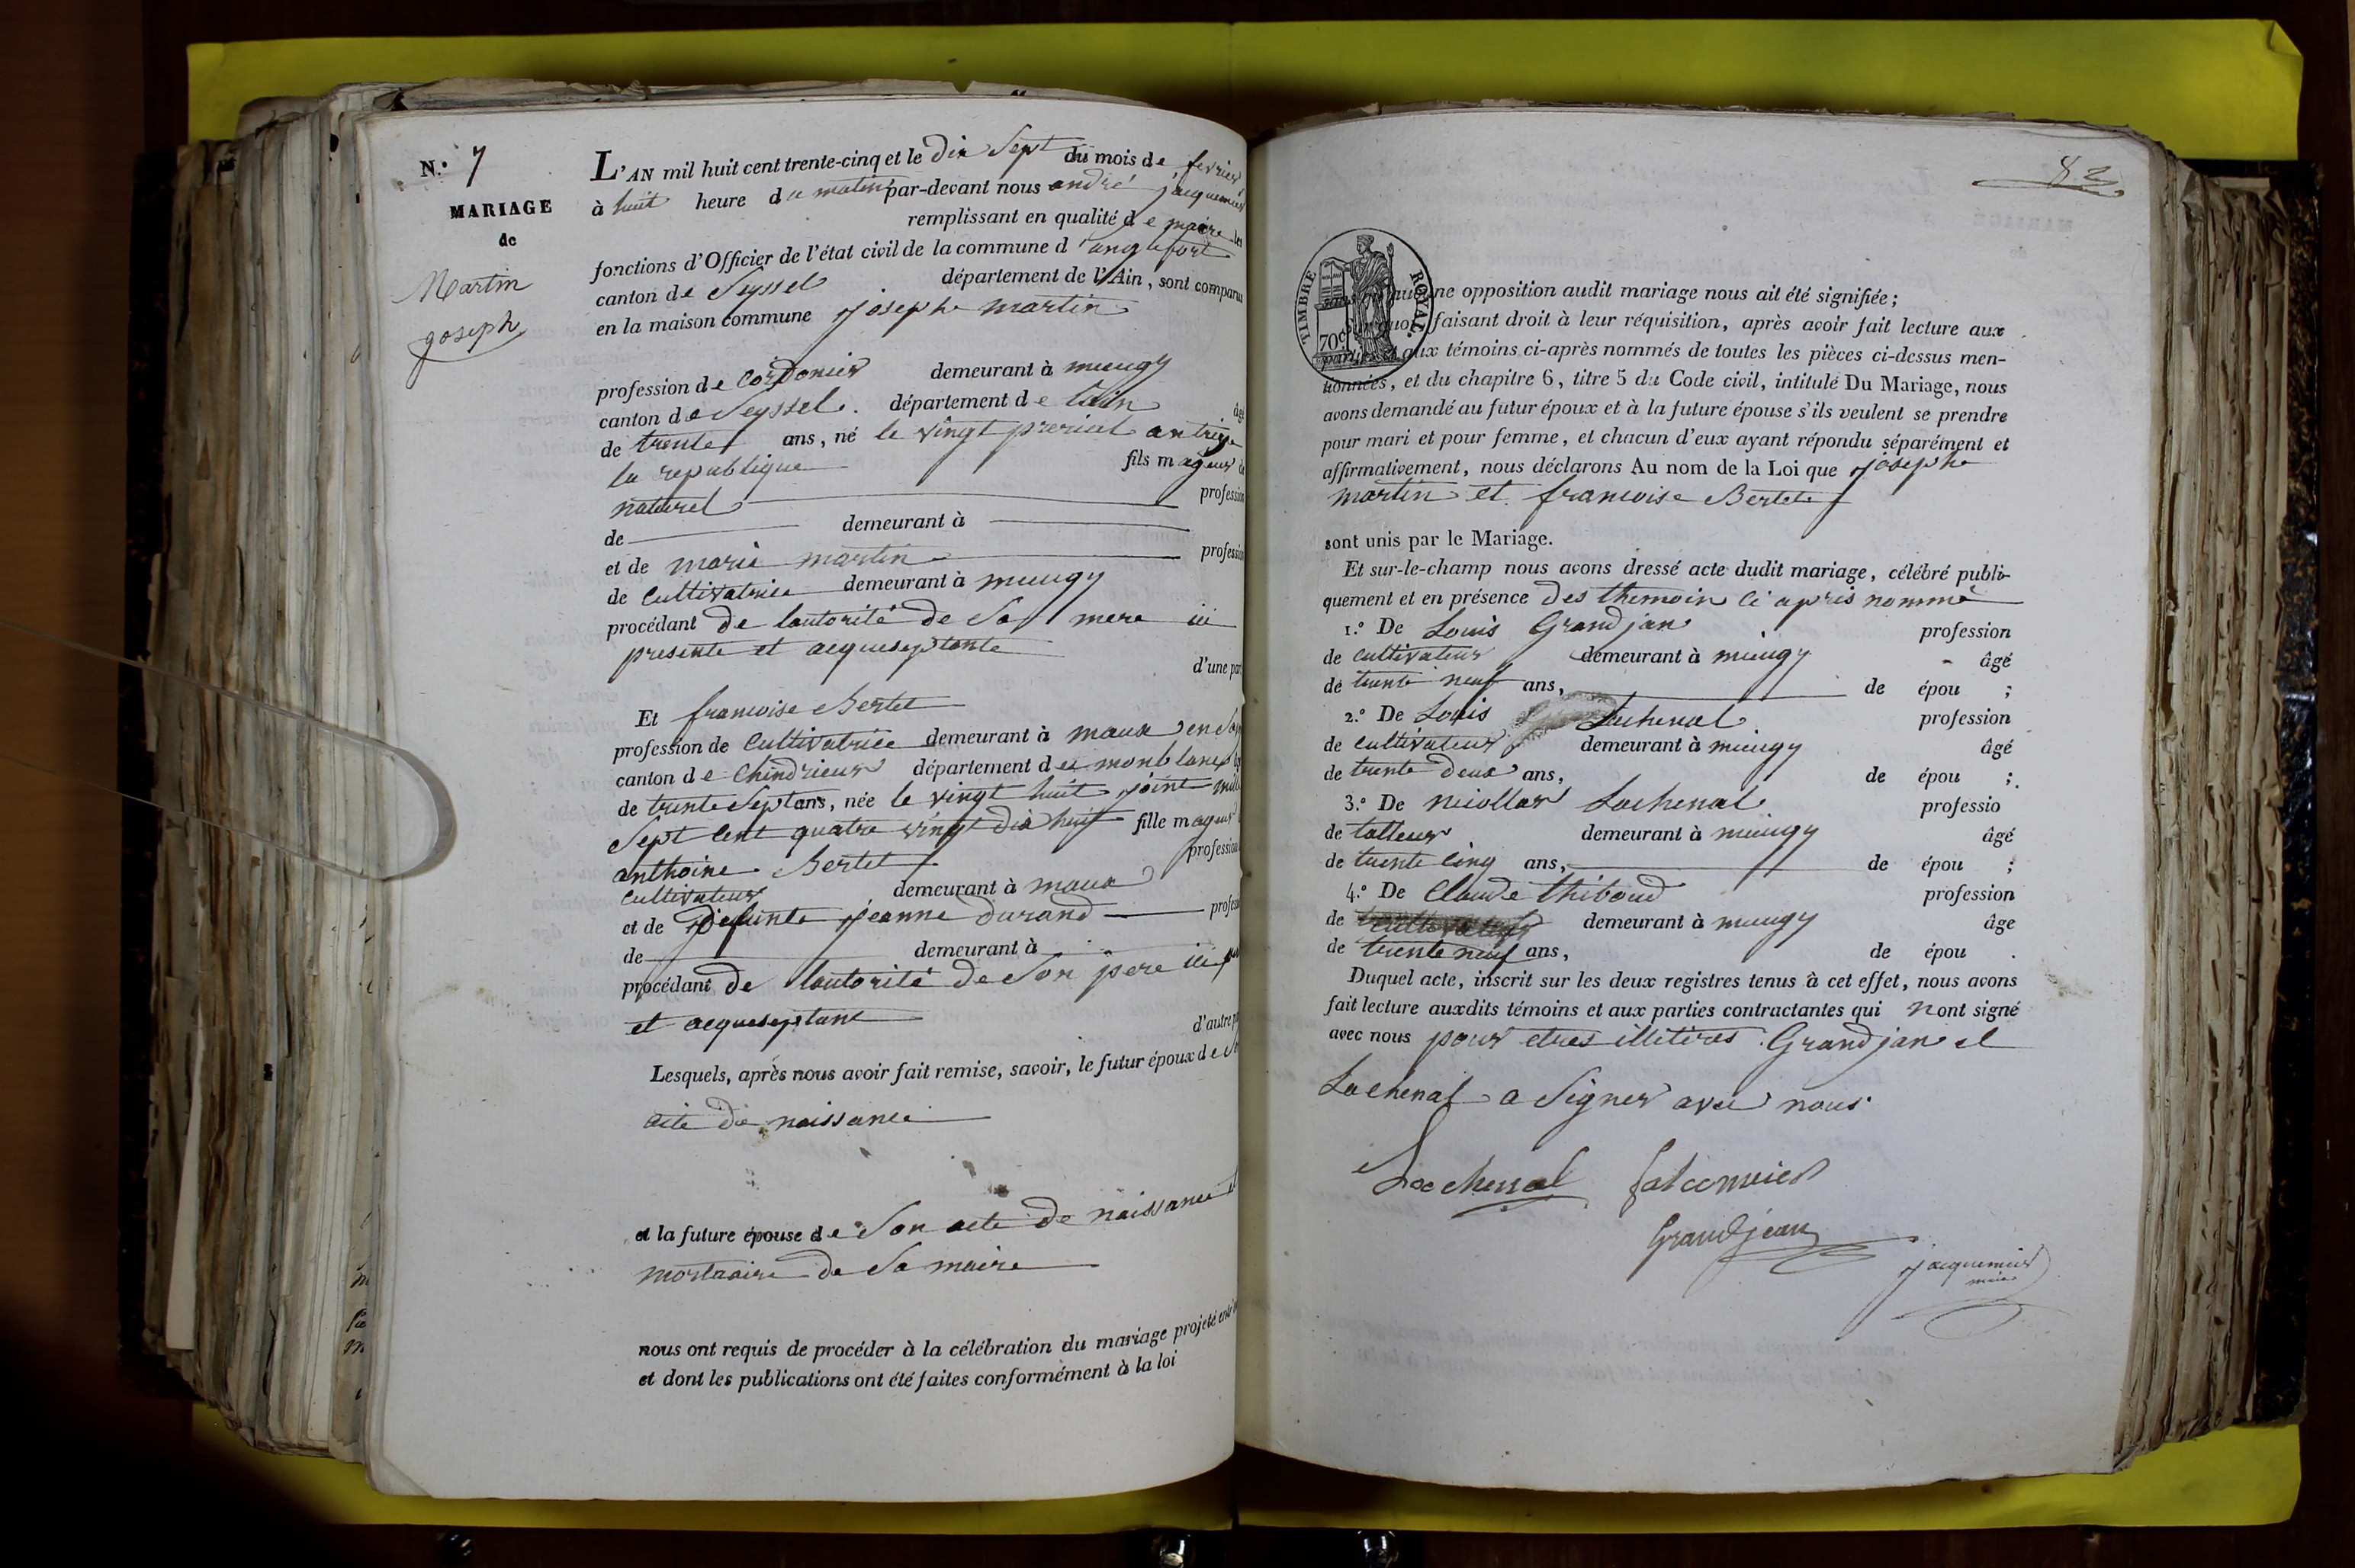 N.o 7
MARIAGE
de
Martin
joseph
L'AN mil huit cent trente-cinq et le dix Sept du mois de fevrier
à huit heure du matin par-devant nous andré jacquemier
remplissant en qualité de maire les
fonctions d'Officier de l'état civil de la commune d'anglefort
canton de Seyssel département de l'Ain, sont comparus
en la maison commune joseph martin
profession de Cordonier demeurant à mieugy
canton de Seyssel. département de lain âgé
de trente ans, né le vingt prerial an treize
la republique fils mageur de
naturel profession
de demeurant à
et de marie martin profession
de Cultivatrice demeurant à mieugy
procédant de lautorité de Sa mere ici
presente et acqueseptante
d'une par
Et francoise Bertet
profession de Cultivatrice demeurant à maux en
canton de Chindrieux département de monblanc
de trente Sept ans, née le vingt huit joint mille
Sept Cent quatre vingt dix huit fille mageur
anthoine Bertet profession
Cultivateur demeurant à maux
et de defunte jeanne durand profess
de demeurant à
procédant de lautorité de Son pere ici
et acqueseptant
d'autre pa
Lesquels, après nous avoir fait remise, savoir, le futur époux de
acte de naissance
et la future épouse de Son acte de naissance et
mortuaire de Sa maire
nous ont requis de procéder à la célébration du mariage projeté entr'
et dont les publications ont été faites conformément à la loi
82
TIMBRE ROYAL.
70c
sans qu'aucune opposition audit mariage nous ait été signifiée;
Sur quoi, faisant droit à leur réquisition, après avoir fait lecture aux
parties et aux témoins ci-après nommés de toutes les pièces ci-dessus men-
tionnées, et du chapitre 6, titre 5 du Code civil, intitulé Du Mariage, nous
avons demandé au futur époux et à la future épouse s'ils veulent se prendre
pour mari et pour femme, et chacun d'eux ayant répondu séparément et
affirmativement, nous déclarons Au nom de la Loi que joseph
martin et francoise Bertet
sont unis par le Mariage.
Et sur-le-champ nous avons dressé acte dudit mariage, célébré publi-
quement et en présence des themoin ci apris nommé
1.o De Louis Grandjan profession
de cultivateur demeurant à mieugy âgé
de trente neuf ans, de épou ;
2.o De Louis Lachenal profession
de cultivateur demeurant à mieugy âgé
de trente deux ans, de épou ;
3.o De nicollas Lachenal professio
de talleur demeurant à mieugy âgé
de trente cinq ans, de épou ;
4.o De Claude thiboud profession
de cultivateur demeurant à mieugy âge
de trente neuf ans, de épou .
Duquel acte, inscrit sur les deux registres tenus à cet effet, nous avons
fait lecture auxdits témoins et aux parties contractantes qui nont signé
avec nous pour etres illitires Grandjan et
Lachenal a Signer avec nous
Lachenal falconnier
Grandjean
jacquemier
maire